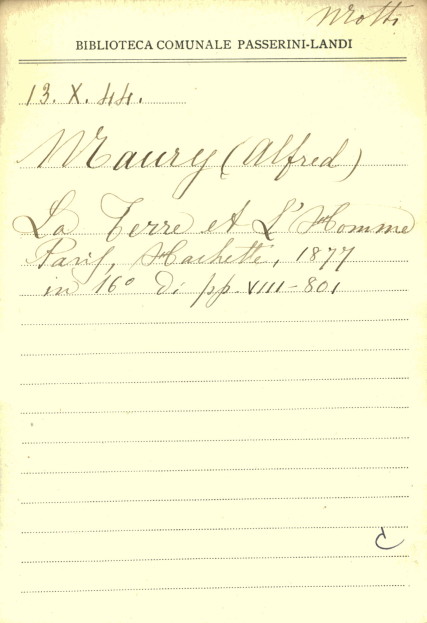 Motti
BIBLIOTECA COMUNALE PASSERINI-LANDI
13. X. 44.
Maury (Alfred)
La Terre et L'Homme
Paris, Hachette, 1877
in 16° di pp. VIII-801
C